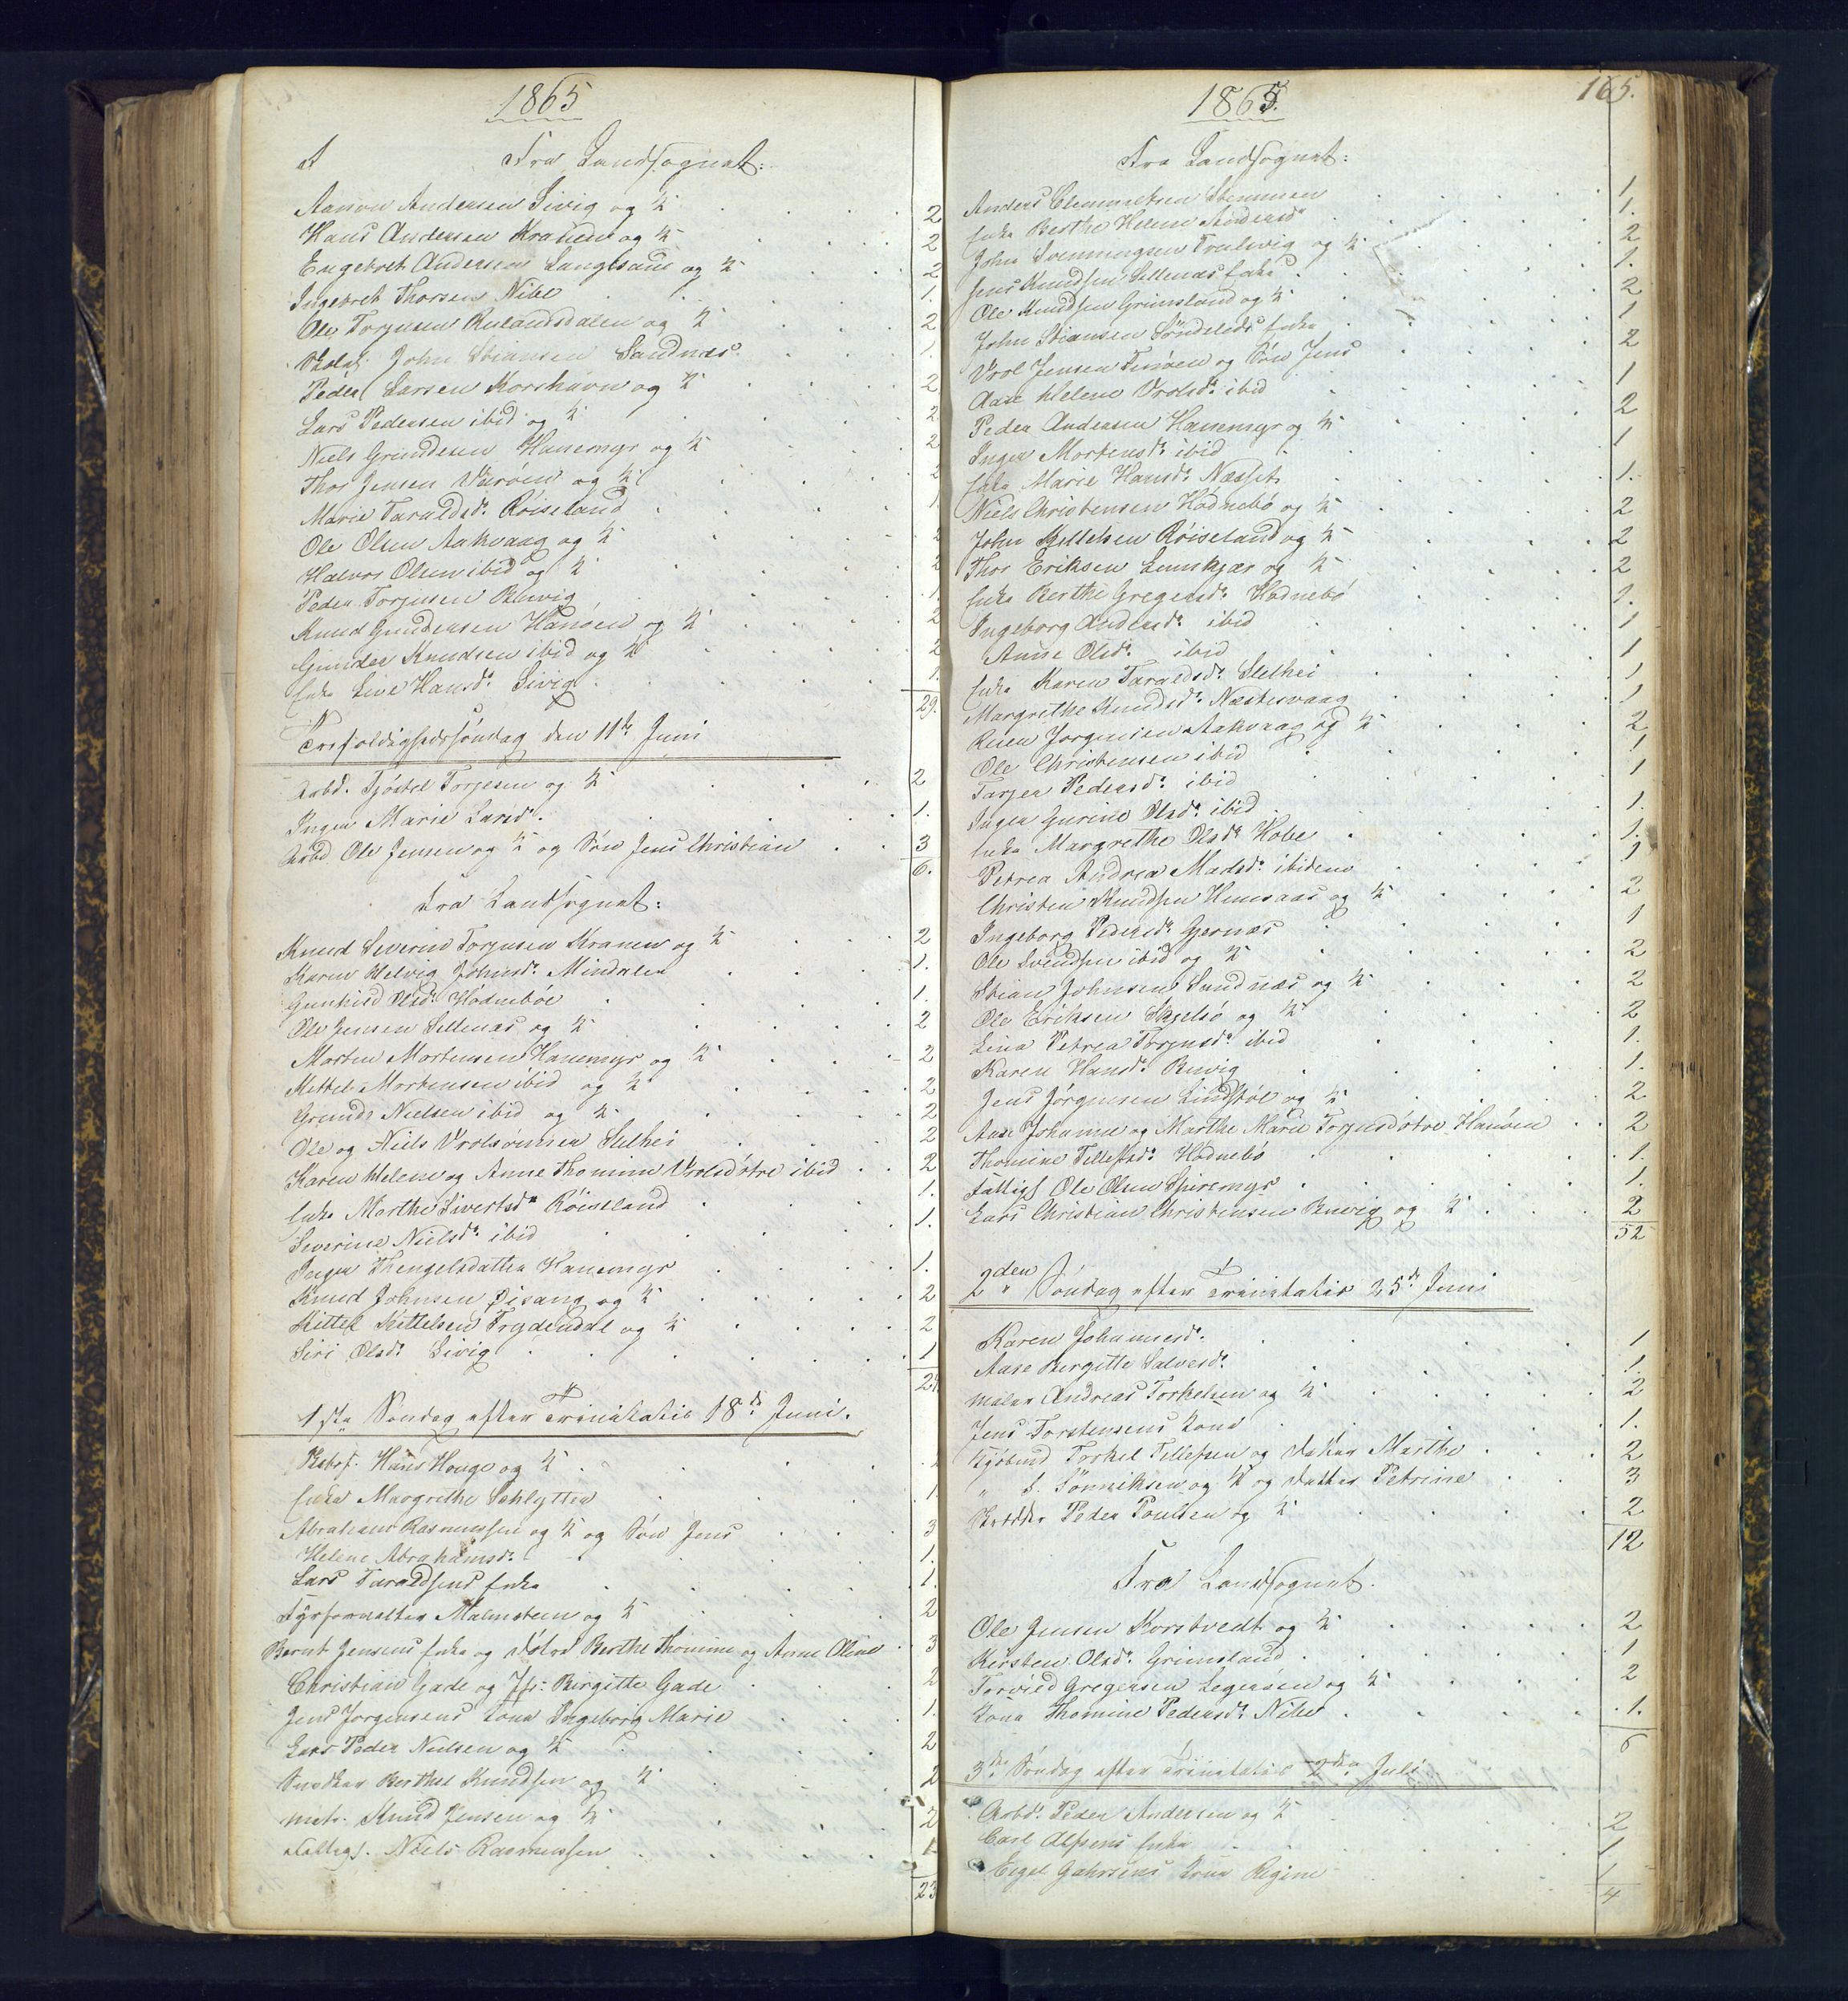 1865
Fra Landsognet:
Aanon Andersen Sivig og K 2
Hans Andersen Kranen og K 2
Engebret Andersen Langesaae og K 2
Ingebret Thorsen Nibe 1.
Ole Torjusen Røilandsdalen og K 2
John Stiansen Sandnæs 1.
Peder Larsen Korshavn og K 2
Lars Pedersen ibid og K 2
Niels Grundesen Hanemyr og K 2
Thor Jensen Varøen og K 2
Marie Taraldsd. Røiseland 1
Ole Olsen Aakvaag og K 2
Halvor Olsen ibid og K 2
Peder Torjusen Buvig 1
Knud Gundersen Hanøen og K 2
Gunder Knudsen ibid og K 2
Enke Live Hansd. Sivig 1
29.
Trefoldighedssøndag den 11te Juni
Arbd. Tjøstel Torjesen og K 2
Inger Marie Larsd. 1.
Arbd Ole Jensen og K og Søn Jens Christian 3
6.
Fra Landsognet:
Knud Severin Torjusen Kranen og K 2
Karen Helvig Johnsd. Mindalen 1.
Gunhild Olsd. Hødnebøe 1.
Ole Jensen Sellenæs og K 2
Morten Mortensen Hanemyr og K 2
Kittel Mortensen ibid og K 2
Grunde Nielsen ibid og K 2
Ole og Niels Vrolsønner Slethei 2
Karen Helene og Anne Thomine Vrolsdøtre ibid 2
Enke Marthe Sivertsd. Røiseland 1.
Severine Nielsd. ibid 1.
Inger Thengelsdatter Hanemyr 1.
Knud Johnsen Øisang og K 2
Kittel Kittelsen Trydendal og K 2
Siri Olsd. Sivig 1
1ste Søndag efter Trinitatis 18de Juni.
Hans Houge og K
Enke Margrethe Schlytter 1
Abraham Rasmussen og K og Søn Jens 3
Helene Abrahamsd. 1.
Lars Taraldsens Enke 1.
Fyrforvalter Malmstein og K 2
Bernt Jensens Enke og Døtre Berthe Thomine og Anne Oline 3
Christian Gade og Jfr: Birgitte Gade 2
Jens Jørgensens Kone Ingeborg Marie 1.
Lars Peder Nielsen og K 2
Snedker Berthel Knudsen og K 2
Matr. Knud Jensen og K 2
Fattigl. Niels Rasmussen 1
23
1865.
165.
Fra Landsognet:
Anders Clemmetsen Stemmen 1.
Enke Berthe Helene Andersd. 1.
John Svenningsen Trælevig og K 2
Jens Knudsen Sellenæs Enke 1.
Ole Knudsen Grimsland og K 2
John Stiansen Søndeleds Enke 1
Vrol Jensen Furøen og Søn Jens 2
Aase Helene Vrolsd. ibid 1
Peder Andersen Hanemyr og K 2
Inger Mortensd. ibid 1
Enke Marie Hansd. Næsset 1.
Niels Christensen Hødnebø og K 2
John Kittelsen Røiseland og K 2
Thor Eriksen Lunskjær og K 2
Enke Berthe Gregersd. Hødnebø 1.
Ingeborg Andersd. ibid 1
Anne Olsd. ibid 1
Enke Karen Taraldsd. Slethei 1
Margrethe Knudsd. Næstesvaag 1
Jørgensen Aakvaag og K 2
Ole Christensen ibid 1
Tarjer Pedersd. ibid 1
Inger Gurine Olsd. ibid 1.
Enke Margrethe Olsd. Hobe 1.
Petrea Andrea Madsd. ibidem 1
Christen Knudsen Humsaas og K 2
Ingeborg Pedersd. Gjernæs 1
Ole Svendsen ibid og K 2
Stian Johnsen Sundnæs og K 2
Ole Eriksen Skjelsø og K 2
Lina Petrea Torjusd. ibid 1.
Karen Hansd. Buvig 1.
Jens Jørgensen Lindstøl og K 2
Aase Johanne og Marthe Marie Torjusdøtre Hanøen 2
Thomine Tellefsd. Hødnebø 1.
Fattigl Ole Olsen Spiremyr 1.
Lars Christian Christensen Buvig og K 2
52
2den Søndag efter Trinitatis 25de Juni
Karen Johannesd. 1
Aase Birgitte Salvesd. 1.
Maler Andreas Torkelsen og K 2
Jens Torstensens Kone 1.
Kjøbmd Torkel Tellefsen og Datter Marthe 2
" S. Tønniksen og K og Datter Petrine 3
Peder Poulsen og K 2
12
Fra Landsognet.
Ole Jensen Korstvedt og K 2
Kirsten Olsd. Grimsland 1
Torvild Gregersen Legersøen og K 2
Kone Thomine Pedersd. Nibe 1.
6
3die Søndag efter Trinitatis 2den Juli
Arbd. Peder Andersen og K 2
Carl Olsens Enke 1
Eigel Gahrsens Kone Regine 1
4